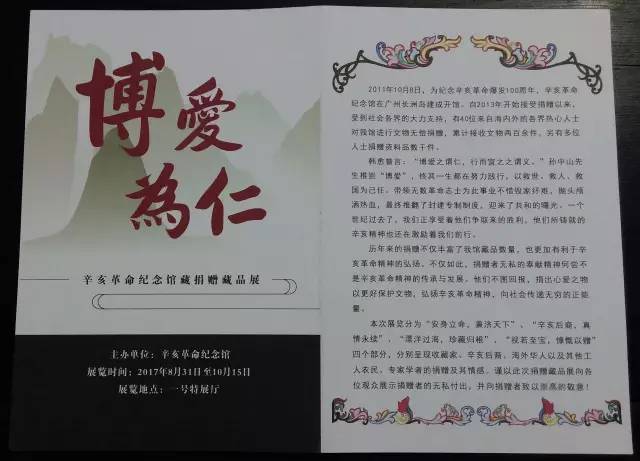 博愛
為仁
辛亥革命纪念馆藏捐赠藏品展
主办单位：辛亥革命纪念馆
展览时间：2017年8月31日至10月15日
展览地点：一号特展厅
2011年10月8日，为纪念辛亥革命爆发100周年，辛亥革命
纪念馆在广州长洲岛建成开馆。自2013年开始接受捐赠以来，
受到社会各界的大力支持，有40位来自海内外的各界热心人士
对我馆进行文物无偿捐赠，累计接收文物两百余件，另有多位
人士捐赠资料品数千件。
韩愈曾言：“博爱之谓仁，行而宜之之谓义。”孙中山先
生推崇“博爱”，终其一生都在努力践行，以救世、救人、救
国为己任。带领无数革命志士为此事业不惜毁家纾难，抛头颅
洒热血，最终推翻了封建专制制度，迎来了共和的曙光。一个
世纪过去了，我们正享受着他们争取来的胜利，他们所铸就的
辛亥精神也还在激励着我们前行。
历年来的捐赠不仅丰富了我馆藏品数量，也更加有利于辛
亥革命精神的弘扬。不仅如此，捐赠者无私的奉献精神何尝不
是辛亥革命精神的传承与发展。他们不图回报，捐出心爱之物
以更好保护文物，弘扬辛亥革命精神，向社会传递无穷的正能
量。
本次展览分为“安身立命，兼济天下”、“辛亥后裔，真
情永续”、“漂洋过海，珍藏归根”、“视若至宝，慷慨以赠”
四个部分，分别呈现收藏家、辛亥后裔、海外华人以及其他工
人农民、专家学者的捐赠及其情感。谨以此次捐赠藏品展向各
位观众展示捐赠者的无私付出，并向捐赠者致以崇高的敬意！